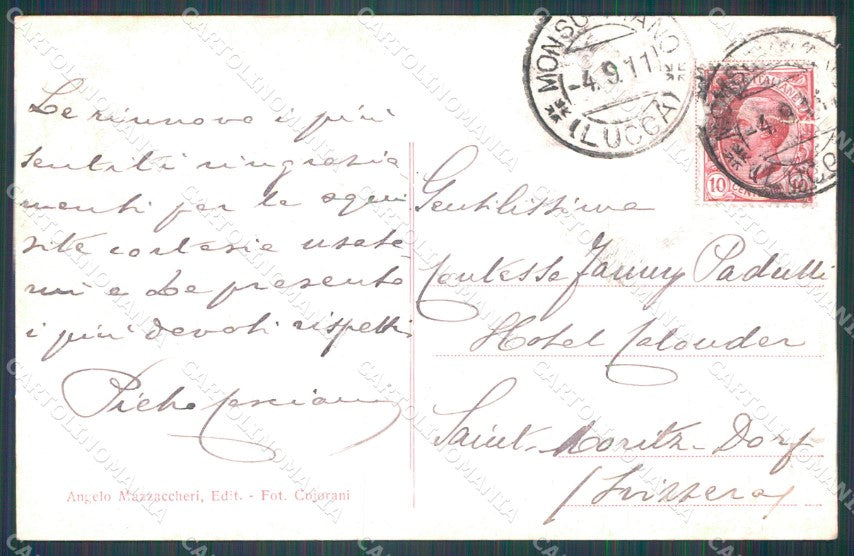 Le rinnovo i più
sentiti ringrazia
menti per le squi
site cortesie usate-
mi e Le presento
i più devoti rispetti
Pietro
Angelo Mazzaccheri, Edit. - Fot. Cojorani
MONSUMMANO
-4.9.11
(LUCCA)
10 CENT
Gentilissima
Contessa Fanny Padulli
Hotel Calonder
Saint-Moritz-Dorf
(Svizzera)
CARTOLINOMANIA